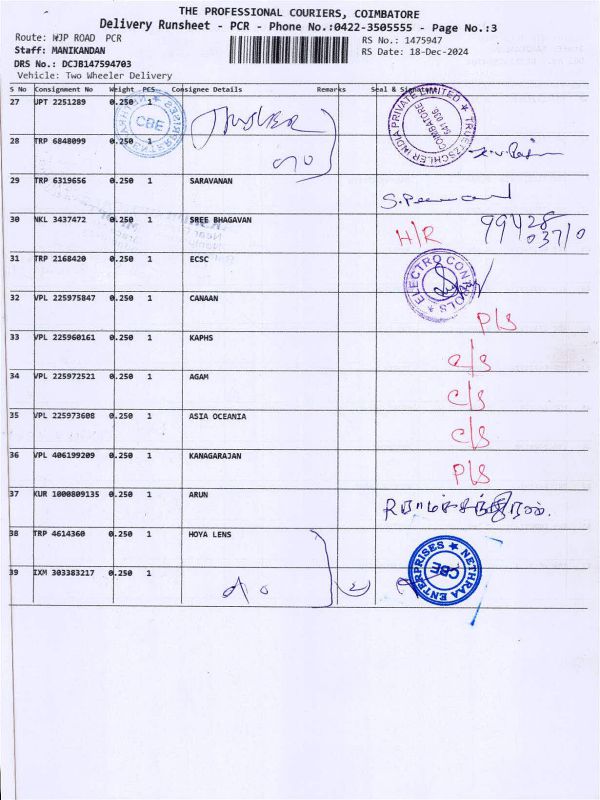 THE PROFESSIONAL COURIERS, COIMBATORE
Delivery Runsheet - PCR - Phone No.:0422-3505555 - Page No.:3
Route: WJP ROAD PCR
RS No.: 1475947
Staff: MANIKANDAN
RS Date: 18-Dec-2024
DRS No.: DCJB147594703
Vehicle: Two Wheeler Delivery
S No Consignment No Weight PCS Consignee Details Remarks Seal & Signature
27 JPT 2251289 0.250 1
TRUETZSCHLER INDIA PRIVATE LIMITED
COIMBATORE 641 036.
CBE
28 TRP 6848099 0.250 1
29 TRP 6319656 0.250 1 SARAVANAN
30 NKL 3437472 0.250 1 SREE BHAGAVAN H/R 99428 03710
31 TRP 2168420 0.250 1 ECSC ELECTRO CONTROLS
32 VPL 225975847 0.250 1 CANAAN P/S
33 VPL 225960161 0.250 1 KAPHS
34 VPL 225972521 0.250 1 AGAM C/S
35 VPL 225973608 0.250 1 ASIA OCEANIA C/S
36 VPL 406199209 0.250 1 KANAGARAJAN P/S
37 KUR 1000809135 0.250 1 ARUN
38 TRP 4614360 0.250 1 HOYA LENS NETHRAA ENTERPRISES CBE
39 IXM 303383217 0.250 1